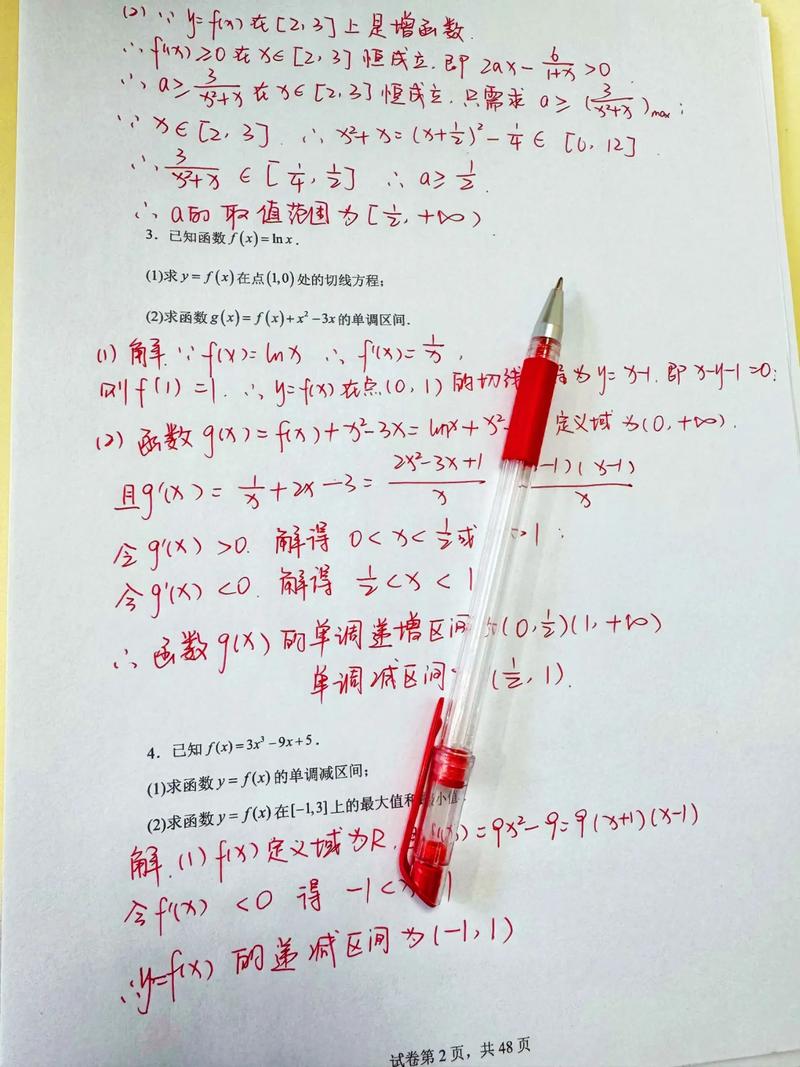 (2) ∵ y=f(x) 在 [2, 3] 上是增函数.
∴ f'(x) ≥0 在 x∈ [2, 3] 恒成立. 即 2ax - 6/(1+x) >0
∴ a≥ 3/(x²+x) 在 x∈ [2, 3] 恒成立. 只需求 a ≥ (3/(x²+x))max ;
∵ x∈ [2, 3] . ∴ x²+x = (x+1/2)² - 1/4 ∈ [0, 12]
∴ 3/(x²+x) ∈ [1/4, 1/2] ∴ a≥ 1/2 .
∴ a的 取值范围为 [1/2, +∞)
3. 已知函数 f(x)=ln x .
(1)求 y=f(x) 在点(1,0) 处的切线方程;
(2)求函数 g(x)=f(x)+x²-3x 的单调区间.
(1) 解: ∵ f(x)= lnx ∴ f'(x)= 1/x ,
则 f'(1) =1. ∴ y=f(x) 在点(0, 1) 的切线 为 y= x-1. 即 x-y-1=0;
(2) 函数 g(x)= f(x)+x²-3x= lnx+x²- 定义域 为(0, +∞).
且 g'(x) = 1/x +2x -3= (2x²-3x+1)/x -1)(x-1)/x
令 g'(x) >0. 解得 0< x< 1/2 或 >1 ;
令 g'(x) <0. 解得 1/2 <x < 1
∴ 函数 g(x) 的单调递增区间 (0, 1/2)(1, +∞)
单调减区间 (1/2, 1).
4. 已知 f(x)=3x³-9x+5 .
(1)求函数 y=f(x) 的单调减区间;
(2)求函数 y=f(x) 在[-1,3] 上的最大值和最小值.
解. (1) f(x) 定义域为R, (x) =9x²-9=9(x+1)(x-1)
令 f'(x) <0 得 -1<x 1
∴ y=f(x) 的递减区间为(-1, 1)
试卷第 2 页，共 48 页